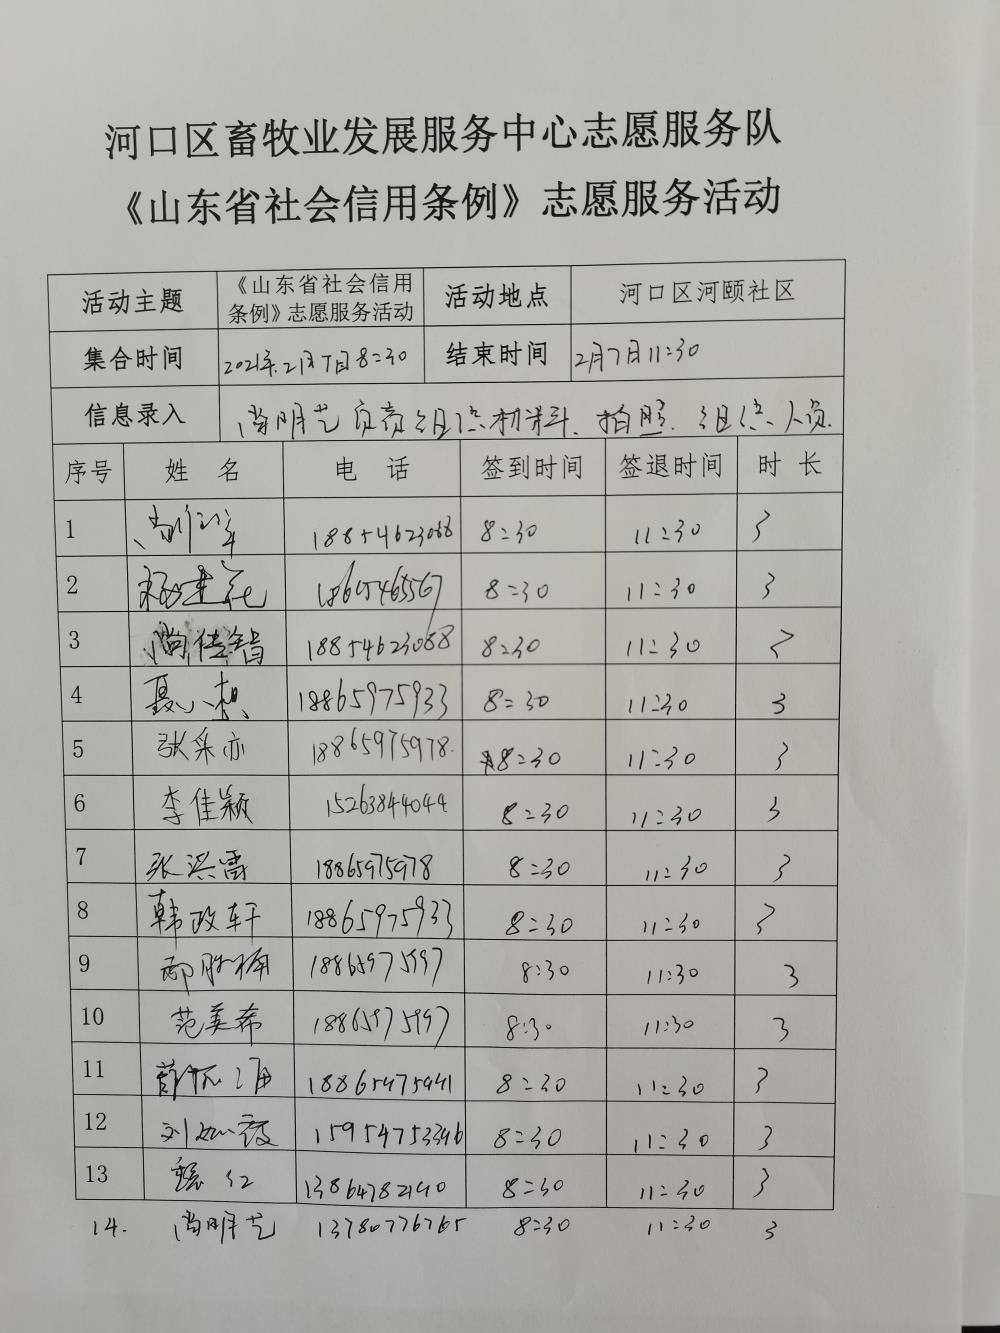 河口区畜牧业发展服务中心志愿服务队
《山东省社会信用条例》志愿服务活动
活动主题 《山东省社会信用条例》志愿服务活动 活动地点 河口区河颐社区
集合时间 2021年2月7日8:30 结束时间 2月7日11:30
信息录入 尚明艺负责组织材料、拍照、组织人员.
序号 姓 名 电 话 签到时间 签退时间 时 长
1 18854623088 8:30 11:30 3
2 18615465567 8:30 11:30 3
3 尚佳智 18854623088 8:30 11:30 3
4 聂小想 18865975933 8:30 11:30 3
5 张采亦 18865975978 8:30 11:30 3
6 李佳颖 15263844044 8:30 11:30 3
7 张洪雷 18865975978 8:30 11:30 3
8 韩政轩 18865975933 8:30 11:30 3
9 18865975997 8:30 11:30 3
10 范美希 18865975997 8:30 11:30 3
11 8:30 11:30 3
12 刘如霞 15954753346 8:30 11:30 3
13 8:30 11:30 3
14. 尚明艺 13780776765 8:30 11:30 3